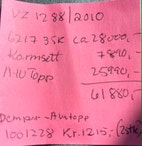 VZ 1288/2010
6217 35K ca 28000,-
Karmsett 7890,-
Alu Topp 25990,-
61880,-
Demper - Alutopp
1001228 Kr. 1215,- (2stk)